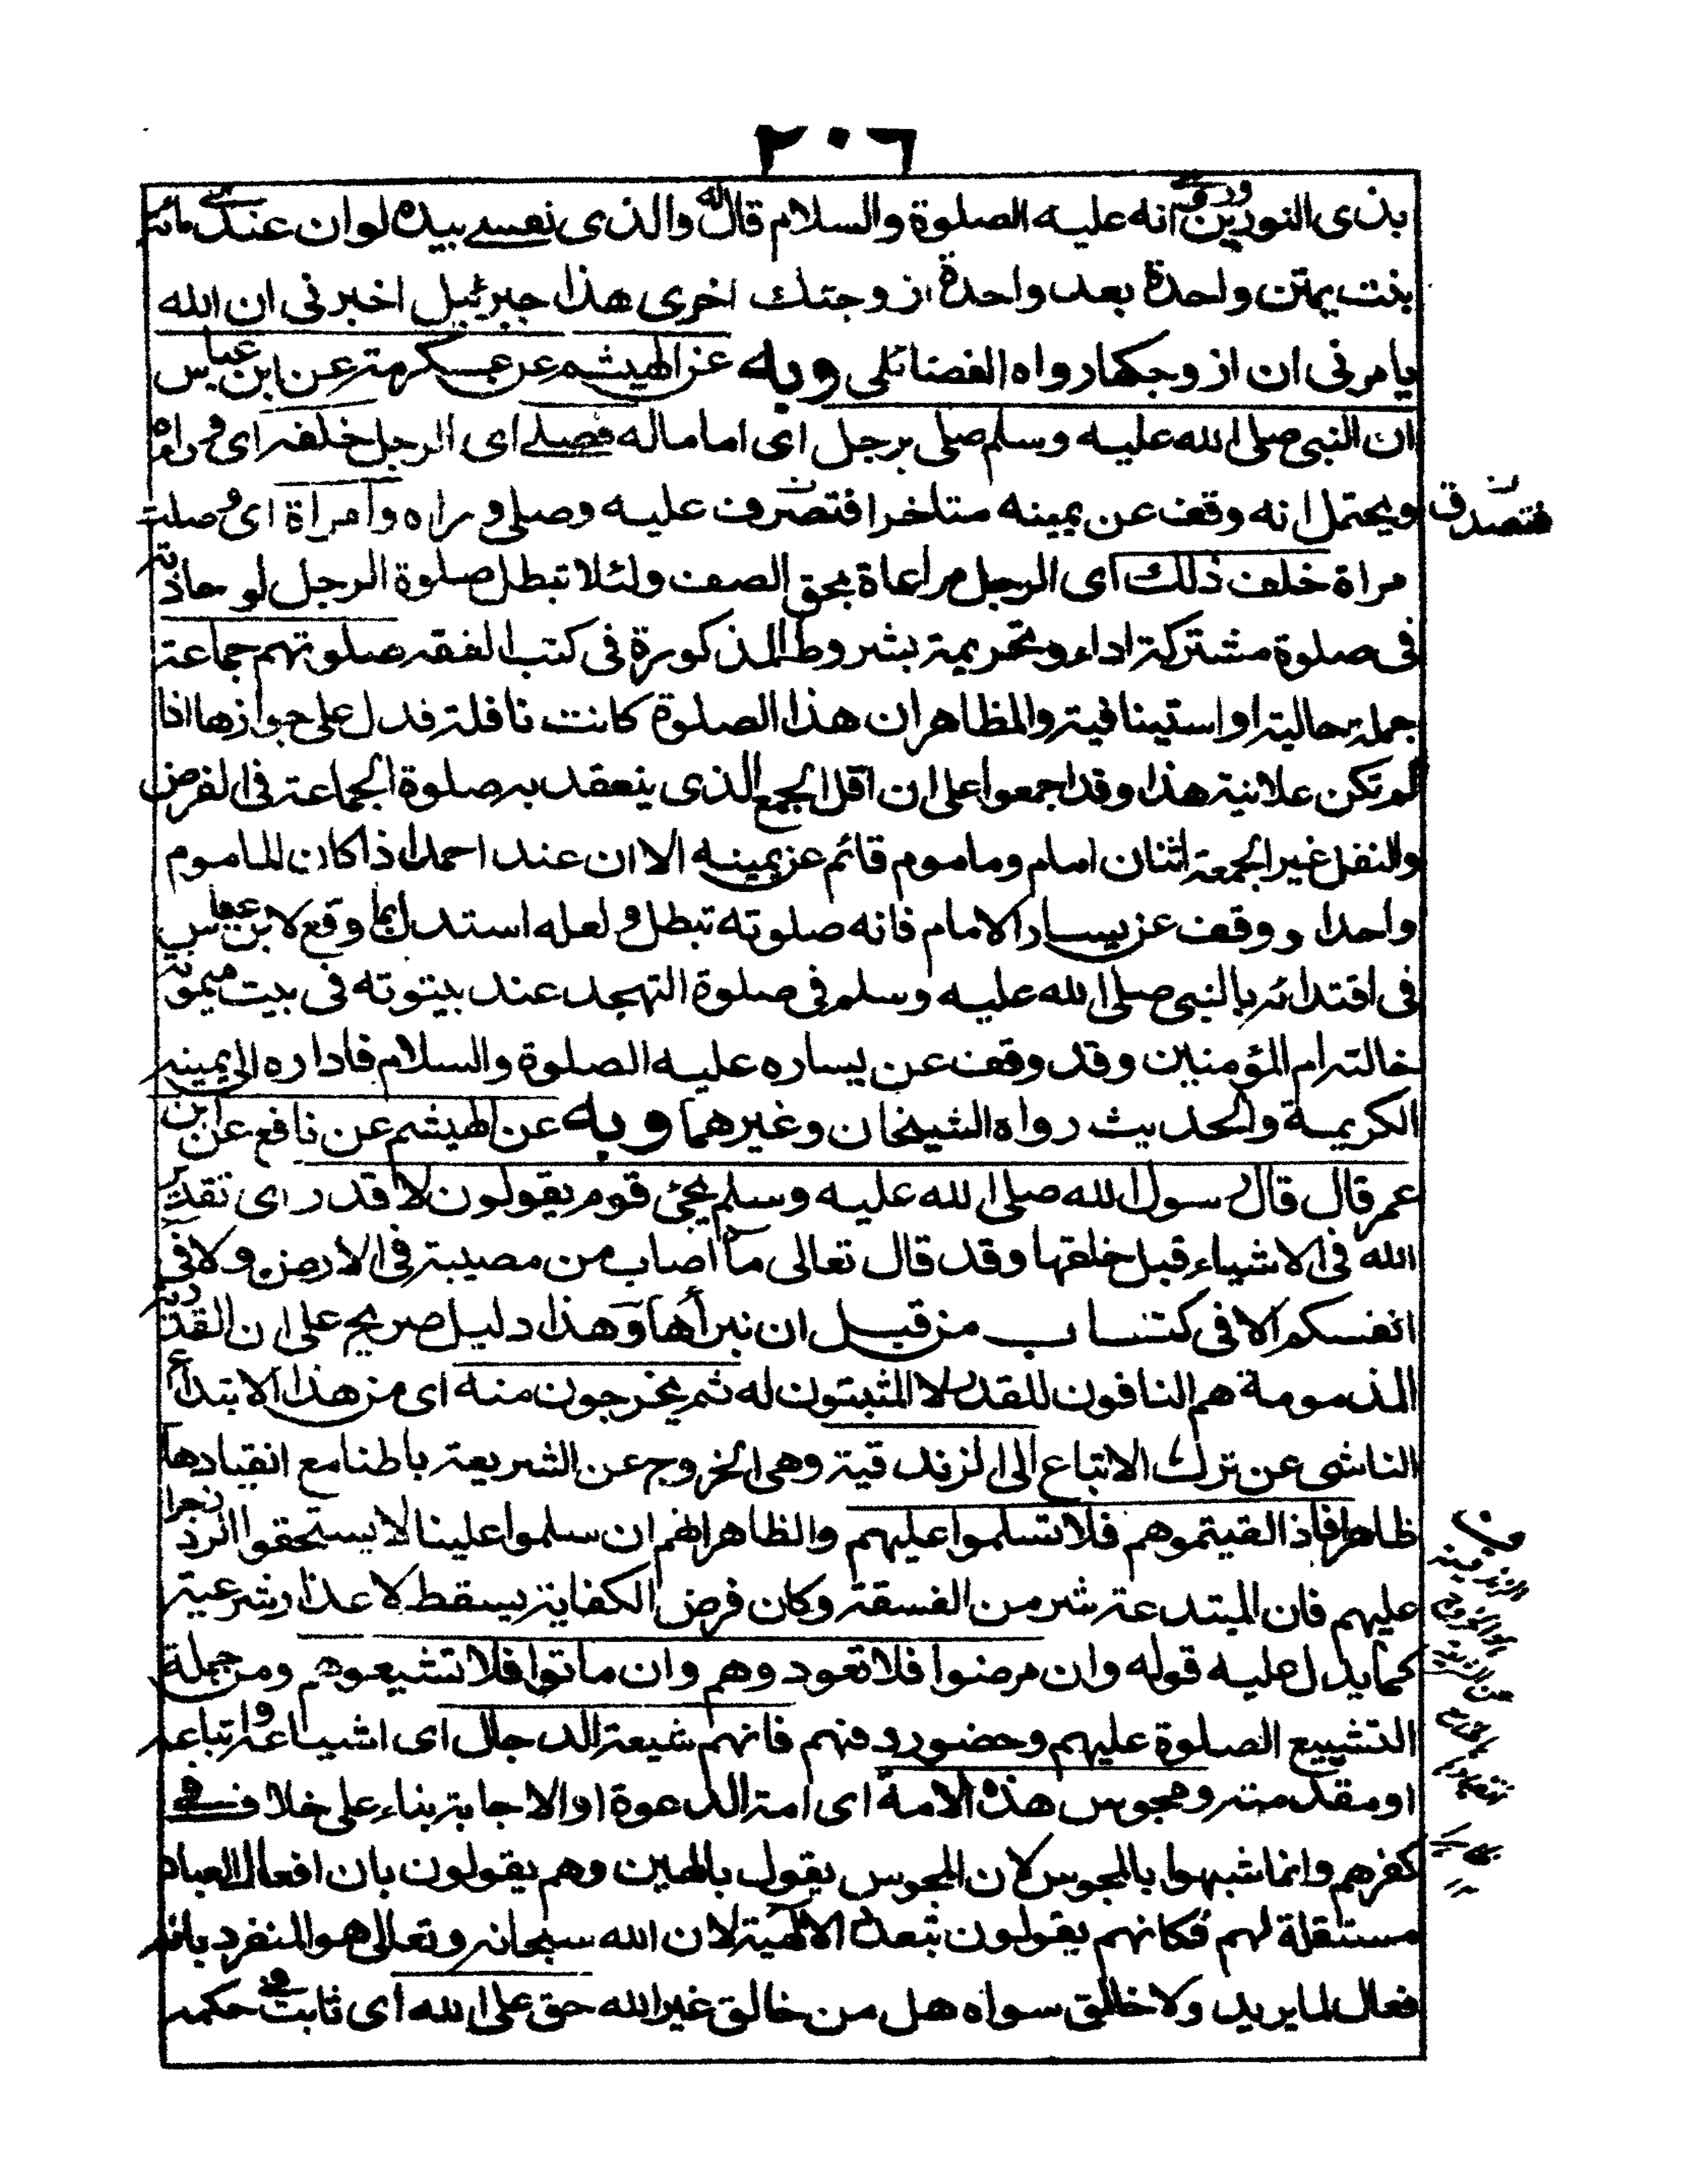 ٢٠٦
بذى النورين وروى انه عليه الصلوة والسلام قال له والذى نفسے بيده لوان عندے مائة
بنت يمتن واحدة بعد واحدة ازوجتك اخرى هذا جبرئيل اخبرنى ان الله
يامرنى ان ازوجكها رواه الفضائلى وبه عن الهيثم عن عكرمة عن ابن عباس
ان النبى صلى الله عليه وسلم صلى برجل اى اماما له فصلے اى الرجل خلفه اى وراه
ويحتمل انه وقف عن يمينه متاخرا فتصرف عليه وصلى وراه وامراة اى وصلت
فتصدق
مراة خلف ذلك اى الرجل مراعاة بحق الصف ولئلا تبطل صلوة الرجل لو حاذته
فى صلوة مشتركة اداء وتحريمة بشروط المذكورة فى كتب الفقه صلوتهم جماعة
جملة حالية او استينافية والمظاهر ان هذا الصلوة كانت نافلة فدل على جوازها اذا
لم تكن علانية هذا وقد اجمعوا على ان اقل الجمع الذى ينعقد به صلوة الجماعة فى الفرض
والنفل غير الجمعة اثنان امام وماموم قائم عن يمينه الا ان عند احمد اذا كان الماموم
واحدا ووقف عن يسار الامام فانه صلوته تبطل ولعله استدل بما وقع لابن عباس
فى اقتدائه بالنبى صلى الله عليه وسلم فى صلوة التهجد عند بيتوته فى بيت ميمونة
خالته ام المؤمنين وقد وقف عن يساره عليه الصلوة والسلام فاداره الى يمينه
الكريمة والحديث رواه الشيخان وغيرهما وبه عن الهيثم عن نافع عن ابن
عمر قال قال رسول الله صلى الله عليه وسلم يجئ قوم يقولون لا قدر اى تقدير
الله فى الاشياء قبل خلقها وقد قال تعالى ما اصاب من مصيبة فى الارض ولا فى
انفسكم الا فى كتاب من قبل ان نبرأها وهذا دليل صريح على ان القدرية
المذمومة هم النافون للقدر لا المثبتون له ثم يخرجون منه اى من هذا الابتداع
الناشى عن ترك الاتباع الى الزندقية وهى الخروج عن الشريعة باطنا مع انقيادها
ظاهرا فاذا لقيتموهم فلا تسلموا عليهم والظاهر انهم ان سلموا علينا لا يستحقوا الرد زجرا
عليهم فان المبتدعة شر من الفسقة وكان فرض الكفاية يسقط لا عذار شرعية
كما يدل عليه قوله وان مرضوا فلا تعودوهم وان ماتوا فلا تشيعوهم ومن جملة
التشييع الصلوة عليهم وحضور دفنهم فانهم شيعة الدجال اى اشياعه واتباعه
او مقدمته ومجوس هذه الامة اى امة الدعوة او الاجابة بناء على خلاف فے
كفرهم وانما شبهوا بالمجوس لان المجوس يقول بالهين وهم يقولون بان افعال العباد
مستقلة لهم فكانهم يقولون بتعدد الالهية لان الله سبحانه وتعالى هو المنفرد بانه
فعال لما يريد ولا خالق سواه هل من خالق غير الله حق على الله اى ثابت فى حكمه